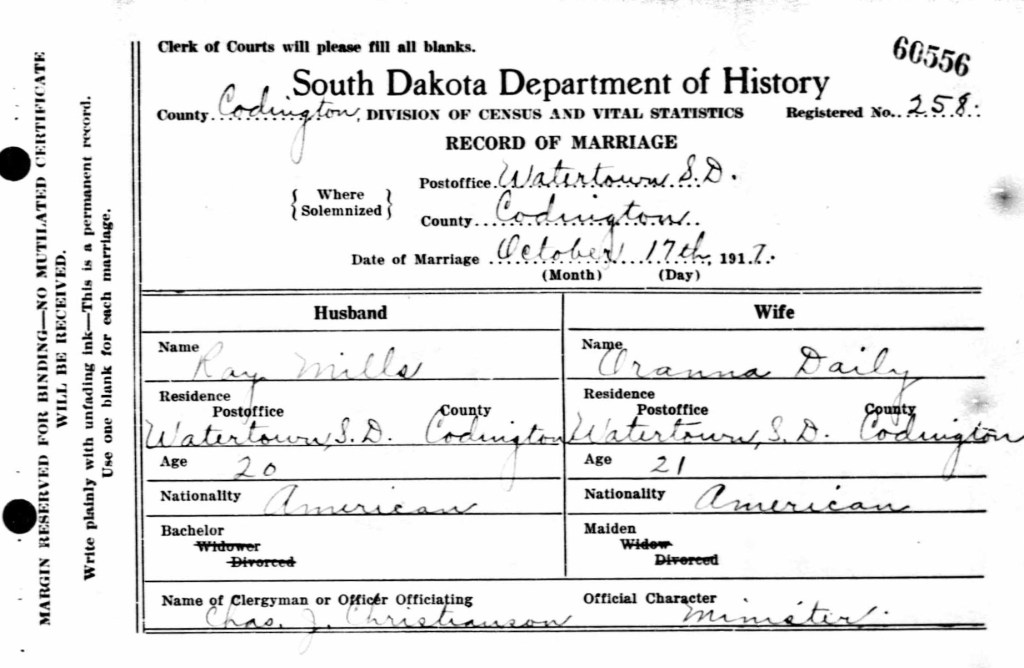 60556
Clerk of Courts will please fill all blanks.
South Dakota Department of History
County Codington, DIVISION OF CENSUS AND VITAL STATISTICS Registered No. 258.
RECORD OF MARRIAGE
Where Solemnized
Postoffice Watertown S.D.
County Codington
Date of Marriage October 17th, 1917.
(Month) (Day)
Husband Wife
Name Ray Mills Name Oranna Daily
Residence Residence
Postoffice County Postoffice County
Watertown, S.D. Codington Watertown, S.D. Codington
Age 20 Age 21
Nationality American Nationality American
Bachelor Maiden
Widower Widow
Divorced Divorced
Name of Clergyman or Officer Officiating Official Character
Chas. J. Christianson Minister.
MARGIN RESERVED FOR BINDING—NO MUTILATED CERTIFICATE
WILL BE RECEIVED.
Write plainly with unfading ink—This is a permanent record.
Use one blank for each marriage.